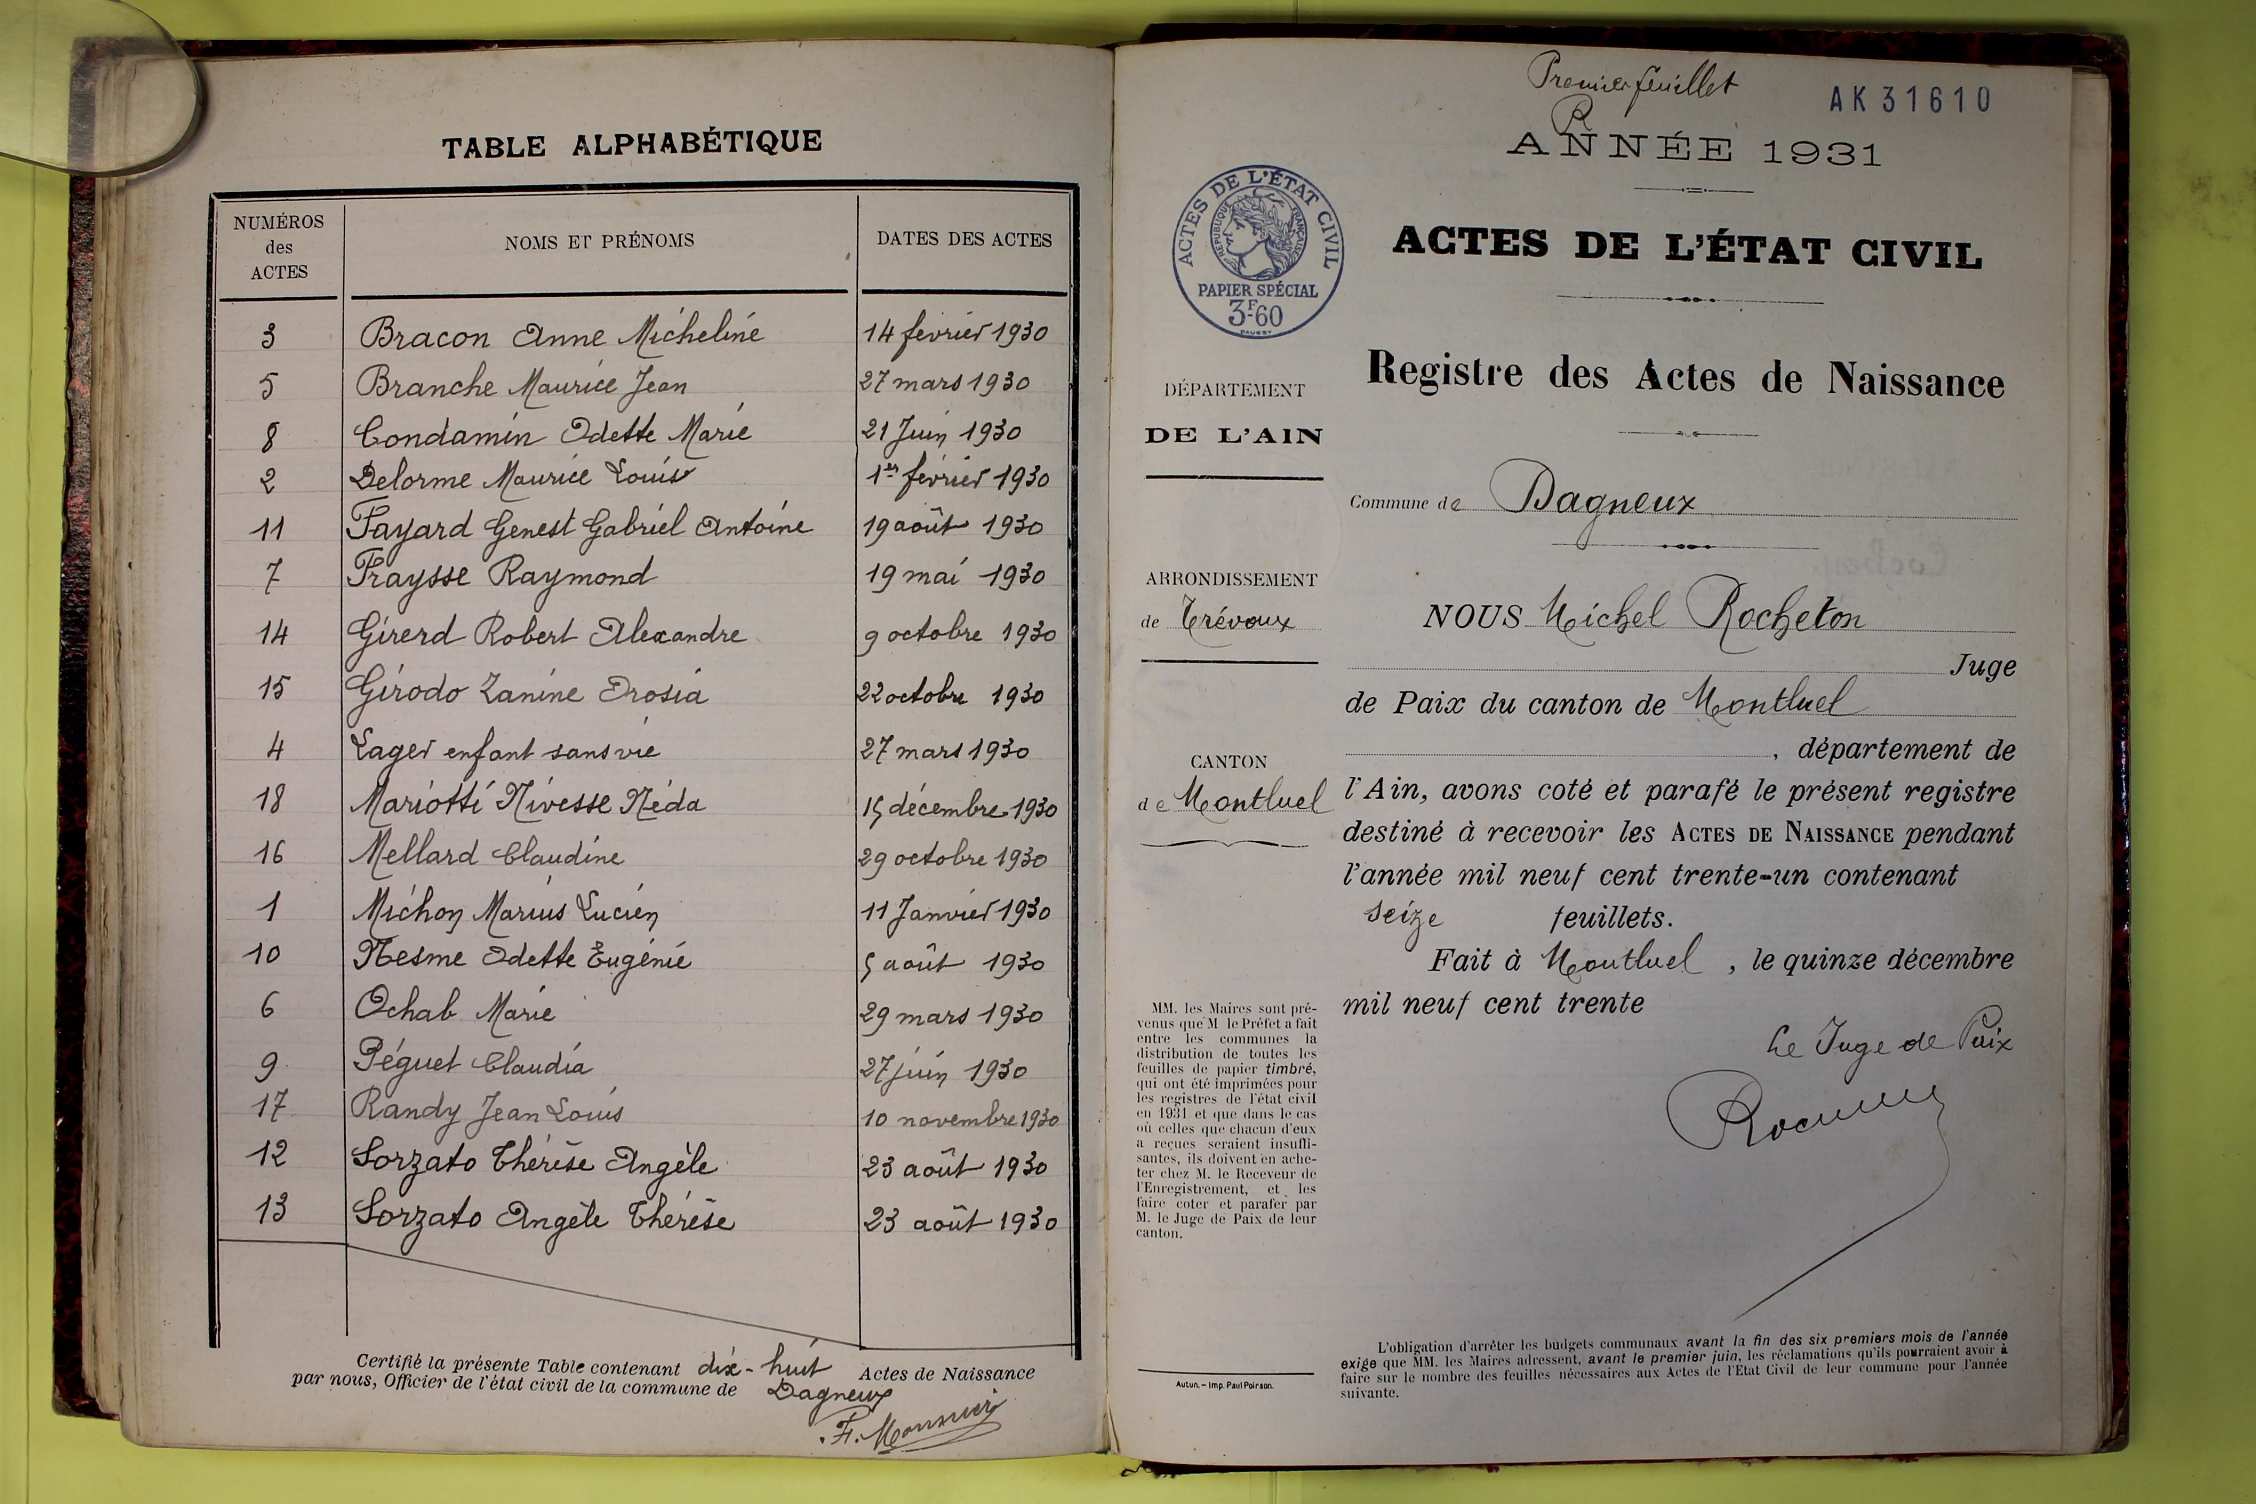 TABLE ALPHABÉTIQUE
NUMÉROS
des
ACTES
NOMS ET PRÉNOMS
DATES DES ACTES
3 Bracon Anne Micheline 14 février 1930
5 Branche Maurice Jean 27 mars 1930
8 Condamin Odette Marie 21 Juin 1930
2 Delorme Maurice Louis 1er février 1930
11 Fayard Genest Gabriel Antoine 19 août 1930
7 Fraysse Raymond 19 mai 1930
14 Girerd Robert Alexandre 9 octobre 1930
15 Girodo Zanine Orosia 22 octobre 1930
4 Lager enfant sans vie 27 mars 1930
18 Mariotti Nivesse Néda 15 décembre 1930
16 Mellard Claudine 29 octobre 1930
1 Michon Marius Lucien 11 Janvier 1930
10 Nesme Odette Eugénie 5 août 1930
6 Ochab Marie 29 mars 1930
9 Péguet Claudia 27 juin 1930
17 Randy Jean Louis 10 novembre 1930
12 Sorzato Thérèse Angèle 23 août 1930
13 Sorzato Angèle Thérèse 23 août 1930
Certifié la présente Table contenant dix-huit Actes de Naissance
par nous, Officier de l'état civil de la commune de Dagneux
F. Monnier
Premier feuillet
R
AK 31610
ANNÉE 1931
ACTES DE L'ÉTAT CIVIL
RÉPUBLIQUE FRANÇAISE
PAPIER SPÉCIAL
3F60
ACTES DE L'ÉTAT CIVIL
Registre des Actes de Naissance
DÉPARTEMENT
DE L'AIN
Commune de Dagneux
ARRONDISSEMENT
de Trévoux
CANTON
de Montluel
NOUS Michel Rocheton
Juge
de Paix du canton de Montluel
, département de
l'Ain, avons coté et parafé le présent registre
destiné à recevoir les ACTES DE NAISSANCE pendant
l'année mil neuf cent trente-un contenant
seize feuillets.
Fait à Montluel, le quinze décembre
mil neuf cent trente
Le Juge de Paix
MM. les Maires sont pré-
venus que M le Préfet a fait
entre les communes la
distribution de toutes les
feuilles de papier timbré,
qui ont été imprimées pour
les registres de l'état civil
en 1931 et que dans le cas
où celles que chacun d'eux
a reçues seraient insuffi-
santes, ils doivent en ache-
ter chez M. le Receveur de
l'Enregistrement, et les
faire coter et parafer par
M. le Juge de Paix de leur
canton.
Autun. – Imp. Paul Poirson.
L'obligation d'arrêter les budgets communaux avant la fin des six premiers mois de l'année
exige que MM. les Maires adressent, avant le premier juin, les réclamations qu'ils pourraient avoir à
faire sur le nombre des feuilles nécessaires aux Actes de l'Etat Civil de leur commune pour l'année
suivante.